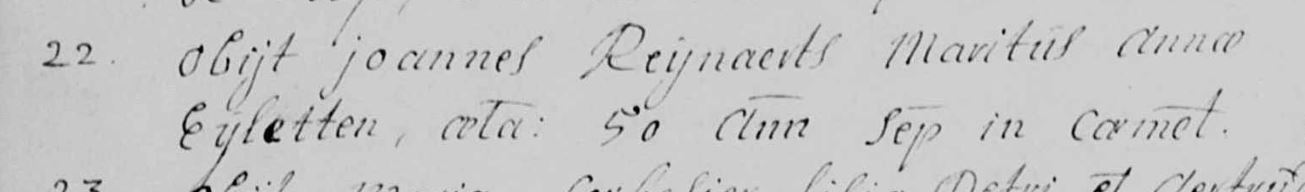 22. obijt joannes Reijnaerts Maritus Annæ
Eyletten, æta: 50 Ann sep in Cœmet.
23 obijt Maria filia Petri et